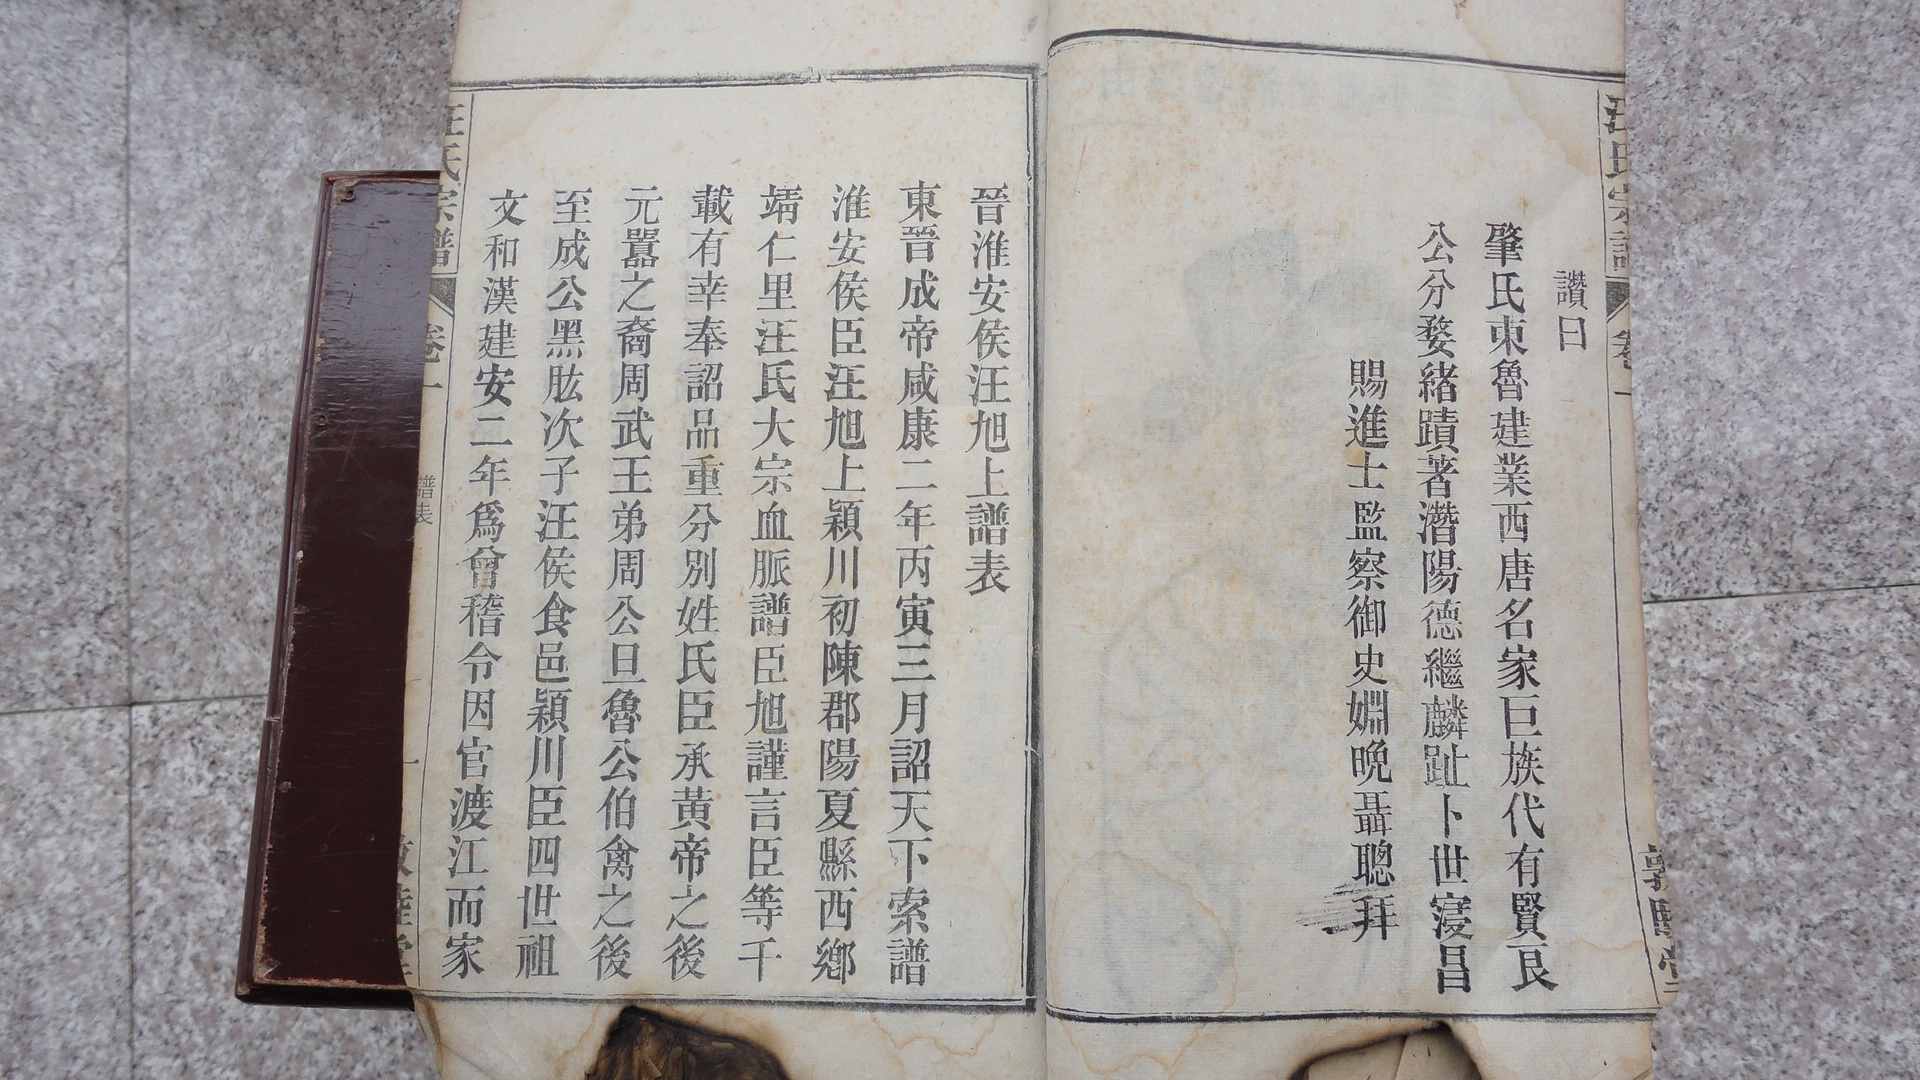 汪氏宗譜
卷一
讚曰
肇氏東魯建業西唐名家巨族代有賢良
公分婺緒蹟著濳陽德繼麟趾卜世寖昌
賜進士監察御史姻晚聶聰拜
晉淮安侯汪旭上譜表
東晉成帝咸康二年丙寅三月詔天下索譜
淮安侯臣汪旭上潁川初陳郡陽夏縣西鄉
靖仁里汪氏大宗血脈譜臣旭謹言臣等千
載有幸奉詔品重分別姓氏臣承黃帝之後
元嚣之裔周武王弟周公旦魯公伯禽之後
至成公黑肱次子汪侯食邑潁川臣四世祖
文和漢建安二年為會稽令因官渡江而家
汪氏宗譜
卷一
譜表
一
敦睦堂